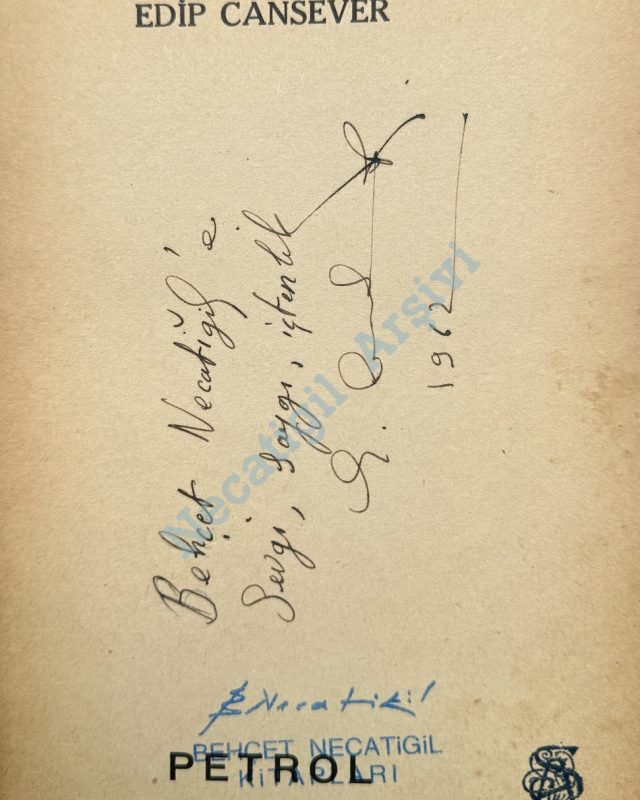 EDİP CANSEVER
Behçet Necatiğil'e
Sevgi, saygı, içtenlik
E. Cansever
1962
Necatigil Arşivi
B Necatigil
BEHÇET NECATİGİL
KİTAPLARI
PETROL